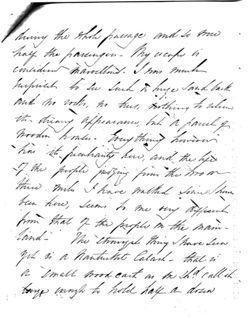 during the whole passage and so were
half the passengers. My escape is
considered marvellous. I was much
surprised to see such a huge sand bank
and no rocks, no trees, nothing to relieve
the dreary appearance, but a parcel of
wooden houses. Everything however
has its peculiarity here, and the
of the people judging from the two or
three which I have watched since I have
been here, seems to me very different
from that of the people on the main-
land. The strangest thing I have seen
yet is a Nantucket Calash - that is
a small wood cart as we sh'd call it
large enough to hold half a dozen